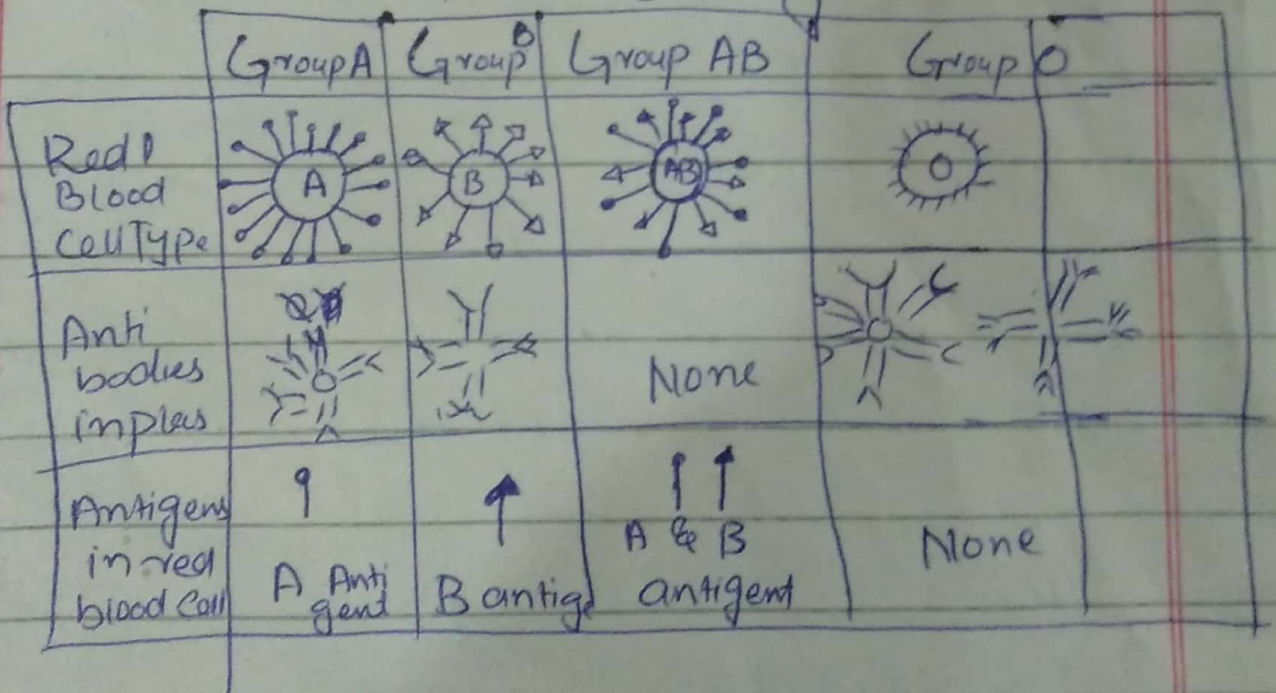 Group A Group B Group AB Group O
Red
Blood
Cell Type
A B AB O
Anti
bodies
inplas
None
Antigens
in red
blood Cell
A Anti
gent
B antig
A & B
antigent
None